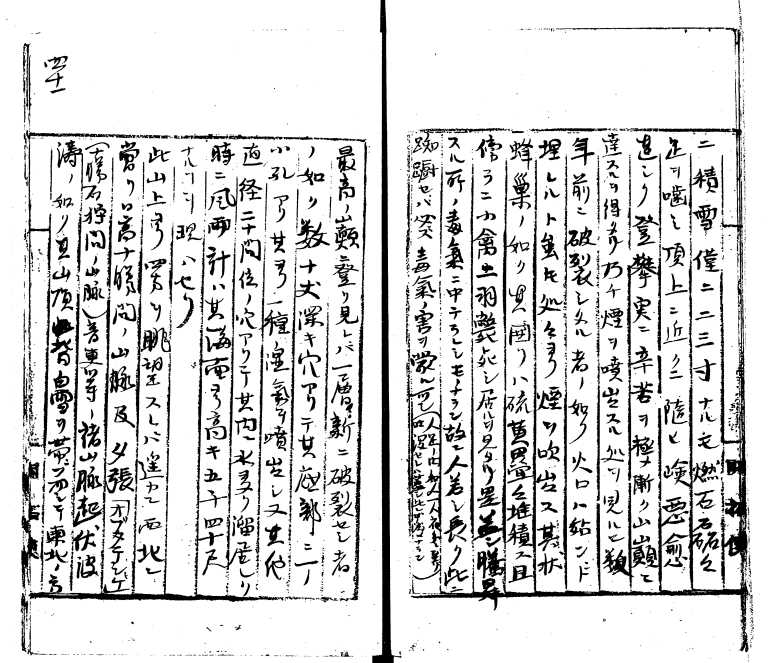 ニ積雪僅ニ二三寸ナルモ燃石磊々
足ヲ噛ミ頂上ニ近クニ随ヒ険悪愈
甚シク登攀実ニ辛苦ヲ極メ漸ク山巓ニ
達スルヲ得タリ乃チ煙ヲ噴出スル処ヲ見ルニ数
年前ニ破裂シタル者ノ如ク火口ハ殆ンド
埋レルト雖モ処々ヨリ煙ヲ吹出ス其状
蜂巣ノ如ク其囲リハ硫黄累々堆積ス且
傍ラニ小禽ノ羽斃死シ居ルヲ見タリ是蓋シ騰昇
スル所ノ毒気ニ中テラレシモノナラン故ニ人若シ長ク此ニ
踟蹰セバ必ス毒気ノ害ヲ蒙ルベシ
最高ノ山巓ニ登リ見レバ一層新ニ破裂セシ者
ノ如ク数十丈深キ穴アリテ其底部ニ一ノ
小孔アリ其ヨリ一種湿気ヲ噴出シ又其他
直径二十間位ノ穴アリテ其内ニ水ヲ溜居レリ
時ニ風雨計ハ其海面ヨリ高キ五千四十尺
ナルコヲ現ハセリ
此山上ヨリ四方ヲ眺望スレバ遥カニ西北ニ
当リ日高十勝間ノ山脈及夕張
(十勝石狩間ノ山脈)音更等ノ諸山脈起伏波
濤ノ如ク其山頂皆白雪ヲ帯ヒ而シテ東北ノ方
四十一
開拓使